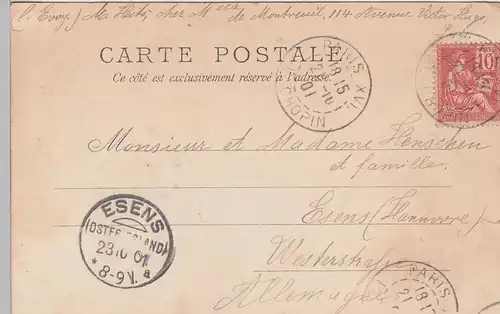 (C. Envoy.) M. Heiti, chez M de Montreuil, 114 Avenue Victor Hugo,
CARTE POSTALE
Ce côté est exclusivement réservé à l'adresse.
PARIS XVI
18 15
2 10
01
CHOPIN
10
Monsieur et Madame Henschen
et famille.
Esens (Hannovre)
Westerstraße
Allemagne
ESENS
(OSTFRIESLAND)
23 10 01
* 8-9 V. a
PARIS
18 15